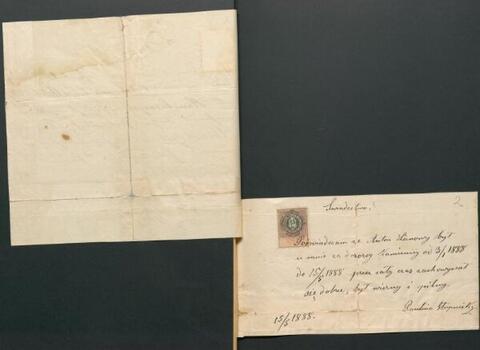 2
Świadectwo!
Poświadczam że Anton był
u mnie za dozorcę kamienicy od 3/1 1888
do 15/5 1888 przez cały czas zachowywał
się dobrze, był wierny i pilny.
Paulina
15/5 1888.